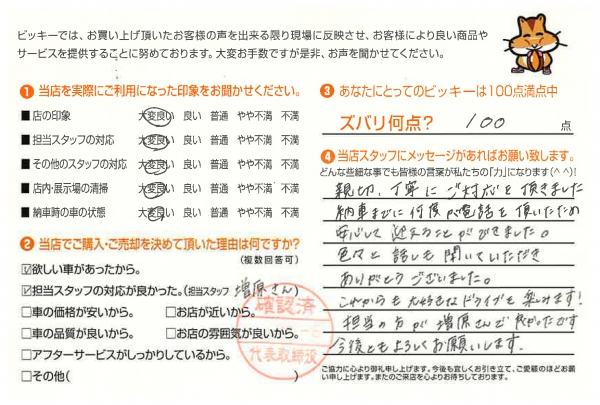 ビッキーでは、お買い上げ頂いたお客様の声を出来る限り現場に反映させ、お客様により良い商品や
サービスを提供することに努めております。大変お手数ですが是非、お声を聞かせてください。
❶ 当店を実際にご利用になった印象をお聞かせください。
■ 店の印象 大変良い 良い 普通 やや不満 不満
■ 担当スタッフの対応 大変良い 良い 普通 やや不満 不満
■ その他のスタッフの対応 大変良い 良い 普通 やや不満 不満
■ 店内・展示場の清掃 大変良い 良い 普通 やや不満 不満
■ 納車時の車の状態 大変良い 良い 普通 やや不満 不満
❷ 当店でご購入・ご売却を決めて頂いた理由は何ですか?
(複数回答可)
☑欲しい車があったから。
☑担当スタッフの対応が良かった。(担当スタッフ 増原さん)
□車の価格が安いから。 □お店が近いから。
□車の品質が良いから。 □お店の雰囲気が良いから。
□アフターサービスがしっかりしているから。
□その他( )
確認済
代表取締役
❸ あなたにとってのビッキーは100点満点中
ズバリ何点? 100 点
❹ 当店スタッフにメッセージがあればお願い致します。
どんな些細な事でも皆様の言葉が私たちの「力」になります(^ ^)!
親切、丁寧にご対応を頂きました
納車までに何度か電話を頂いたため
安心して迎えることができました。
色々と話しも聞いていただき
ありがとうございました。
これからも大好きなドライブを楽しみます!
担当の方が増原さんで良かったです
今後ともよろしくお願いします。
ご協力に心より御礼申し上げます。今後も宜しくお引き立て、ご愛顧のほどお願
い申し上げます。またのご来店を心よりお待ちしております。